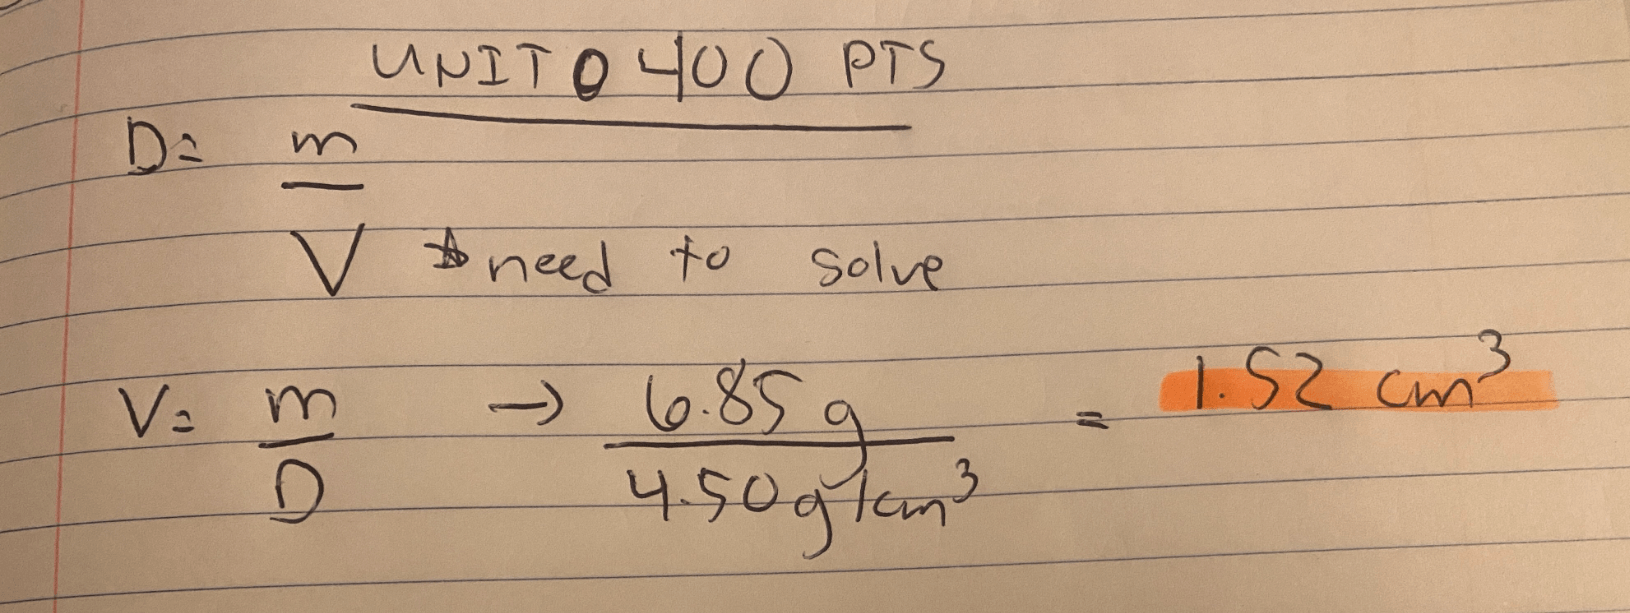 UNIT 0 400 PTS
D= m
V * need to solve
V= m/D → 6.85 g / 4.50 g/cm³ = 1.52 cm³